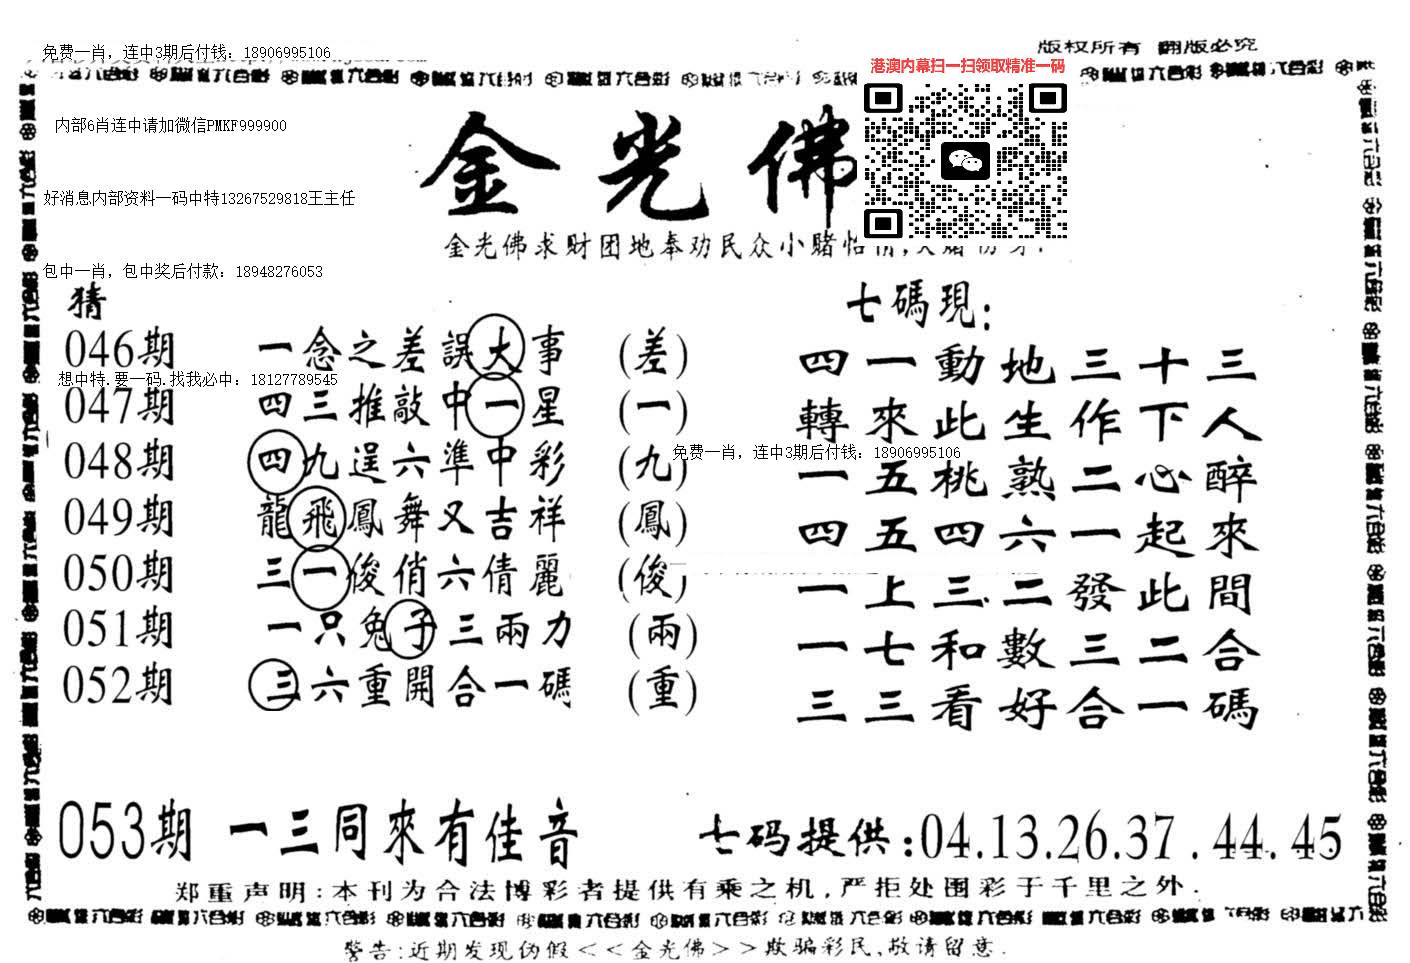 版权所有 翻版必究
免费一肖，连中3期后付钱：18906995106
港澳内幕扫一扫领取精准一码
内部6肖连中请加微信PMKF999900
金光佛
好消息内部资料一码中特13267529818王主任
金光佛求财团地奉劝民众小赌怡情,大赌伤身.
包中一肖，包中奖后付款：18948276053
猜
七碼現:
046期 一念之差誤大事 (差)
四一動地三十三
想中特.要一码.找我必中：18127789545
047期 四三推敲中一星 (一)
轉來此生作下人
免费一肖，连中3期后付钱：18906995106
048期 四九逞六準中彩 (九)
一五桃熟二心醉
049期 龍飛鳳舞又吉祥 (鳳)
四五四六一起來
050期 三一俊俏六倩麗 (俊)
一上三二發此間
051期 一只兔子三兩力 (兩)
一七和數三二合
052期 三六重開合一碼 (重)
三三看好合一碼
053期 一三同來有佳音 七码提供:04.13.26.37.44.45
郑重声明:本刊为合法博彩者提供有乘之机,严拒处围彩于千里之外.
警告:近期发现伪假<<金光佛>>欺骗彩民,敬请留意.